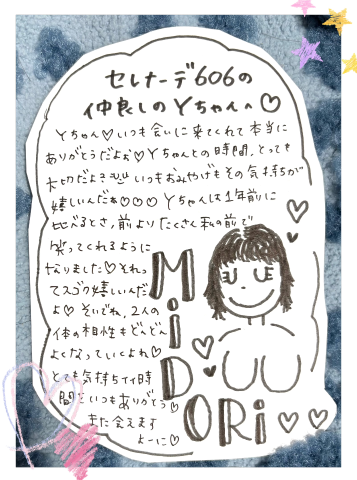 セレナーデ606の
仲良しのYちゃんへ♡
Yちゃん♡いつも会いに来てくれて本当に
ありがとうだよぉ♡Yちゃんとの時間、とっても
大切だよ いつもおみやげもその気持ちが
嬉しいんだぁ♡♡♡Yちゃんは1年前に
比べるとさ、前よりたくさん私の前で
笑ってくれるように
なりました♡それっ
てスゴク嬉しいんだ
よ♡そいでね、2人の
体の相性もどんどん
よくなっていくよね♡
とても気持ちイイ時
間をいつもありがとう♡
また会えます
よーに♡
MiDORi